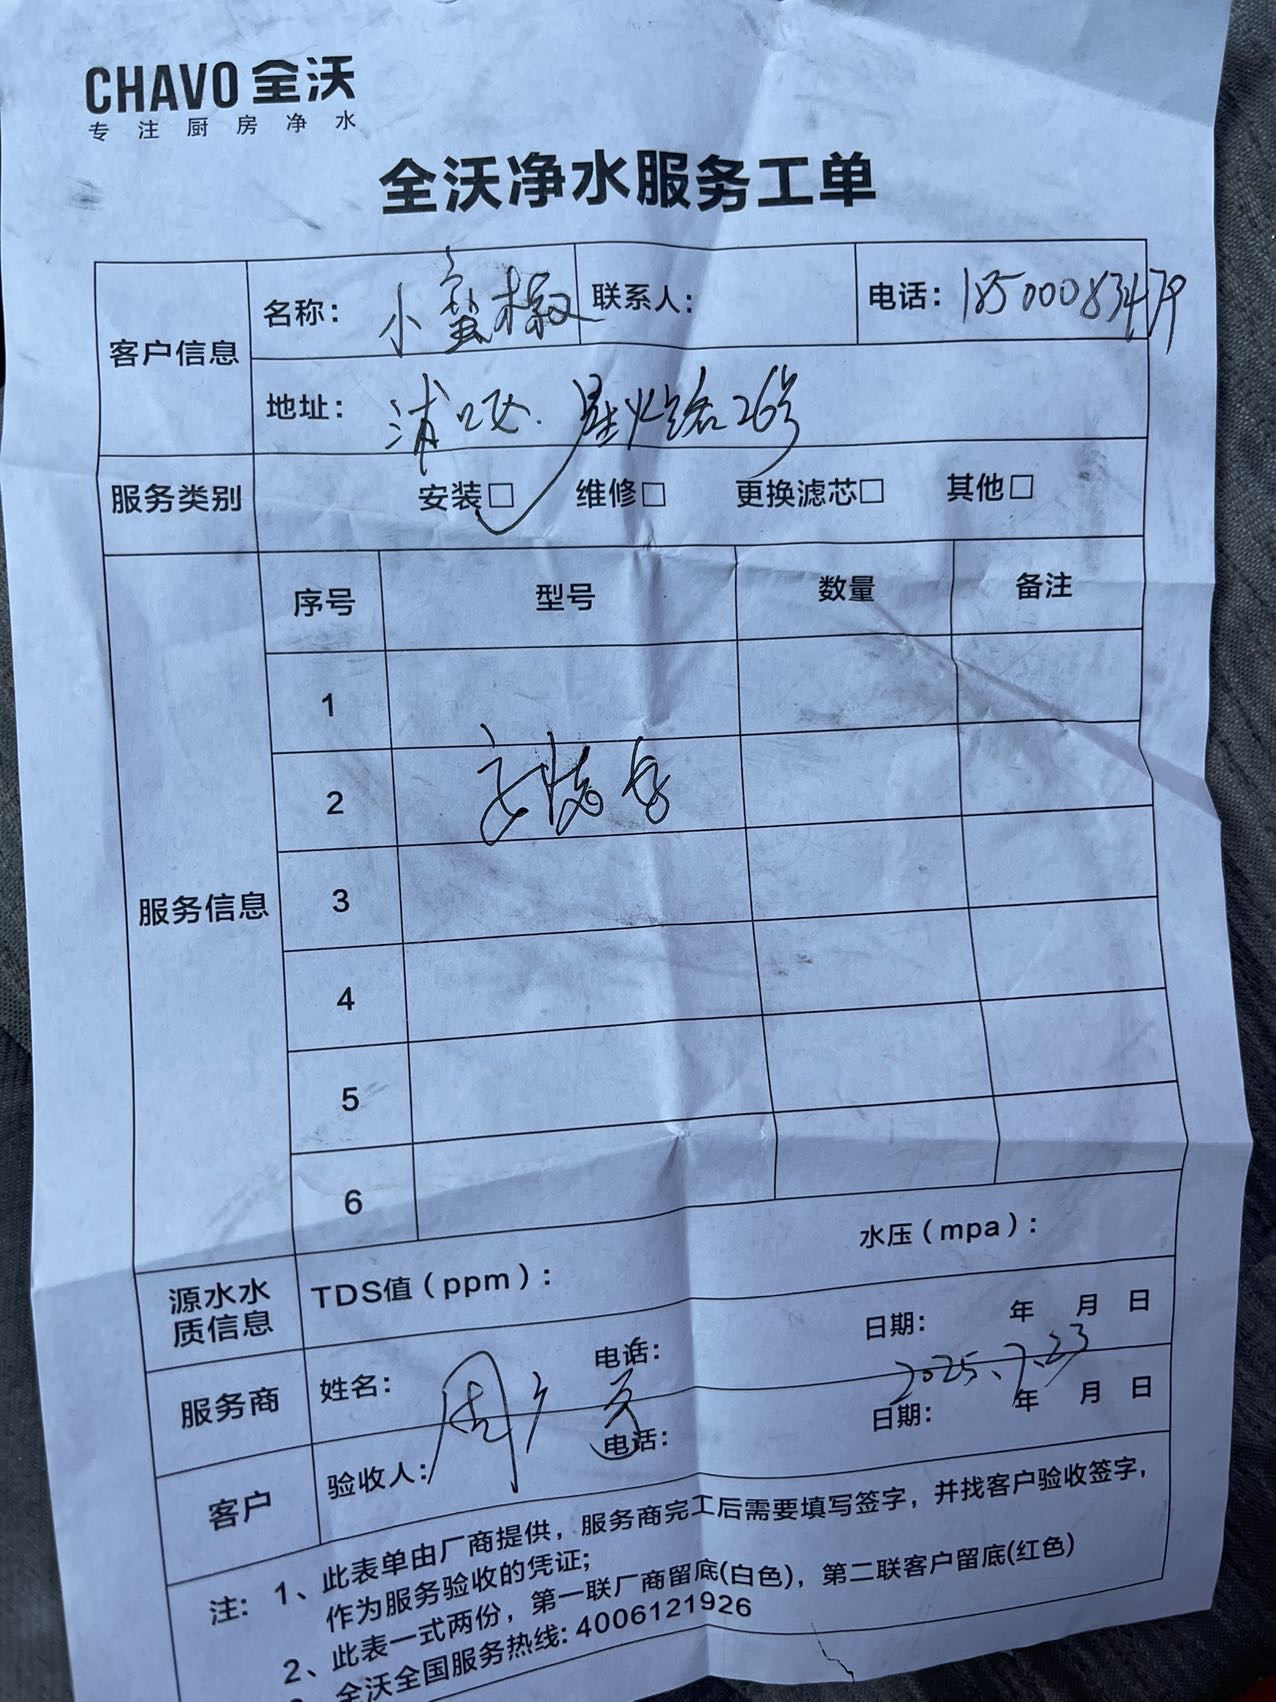 CHAVO 全沃
专注厨房净水
全沃净水服务工单
客户信息
名称： 小蛮椒 联系人： 电话：18500083479
地址： 浦口 星火路26号
服务类别 安装□ 维修□ 更换滤芯□ 其他□
服务信息
序号 型号 数量 备注
1
2
3
4
5
6
源水水质信息 TDS值（ppm）： 水压（mpa）：
服务商 姓名： 电话： 日期： 年 月 日
2025.7.23
客户 验收人： 周 电话： 日期： 年 月 日
注：1、此表单由厂商提供，服务商完工后需要填写签字，并找客户验收签字，
作为服务验收的凭证；
2、此表一式两份，第一联厂商留底(白色)，第二联客户留底(红色)
全沃全国服务热线：4006121926